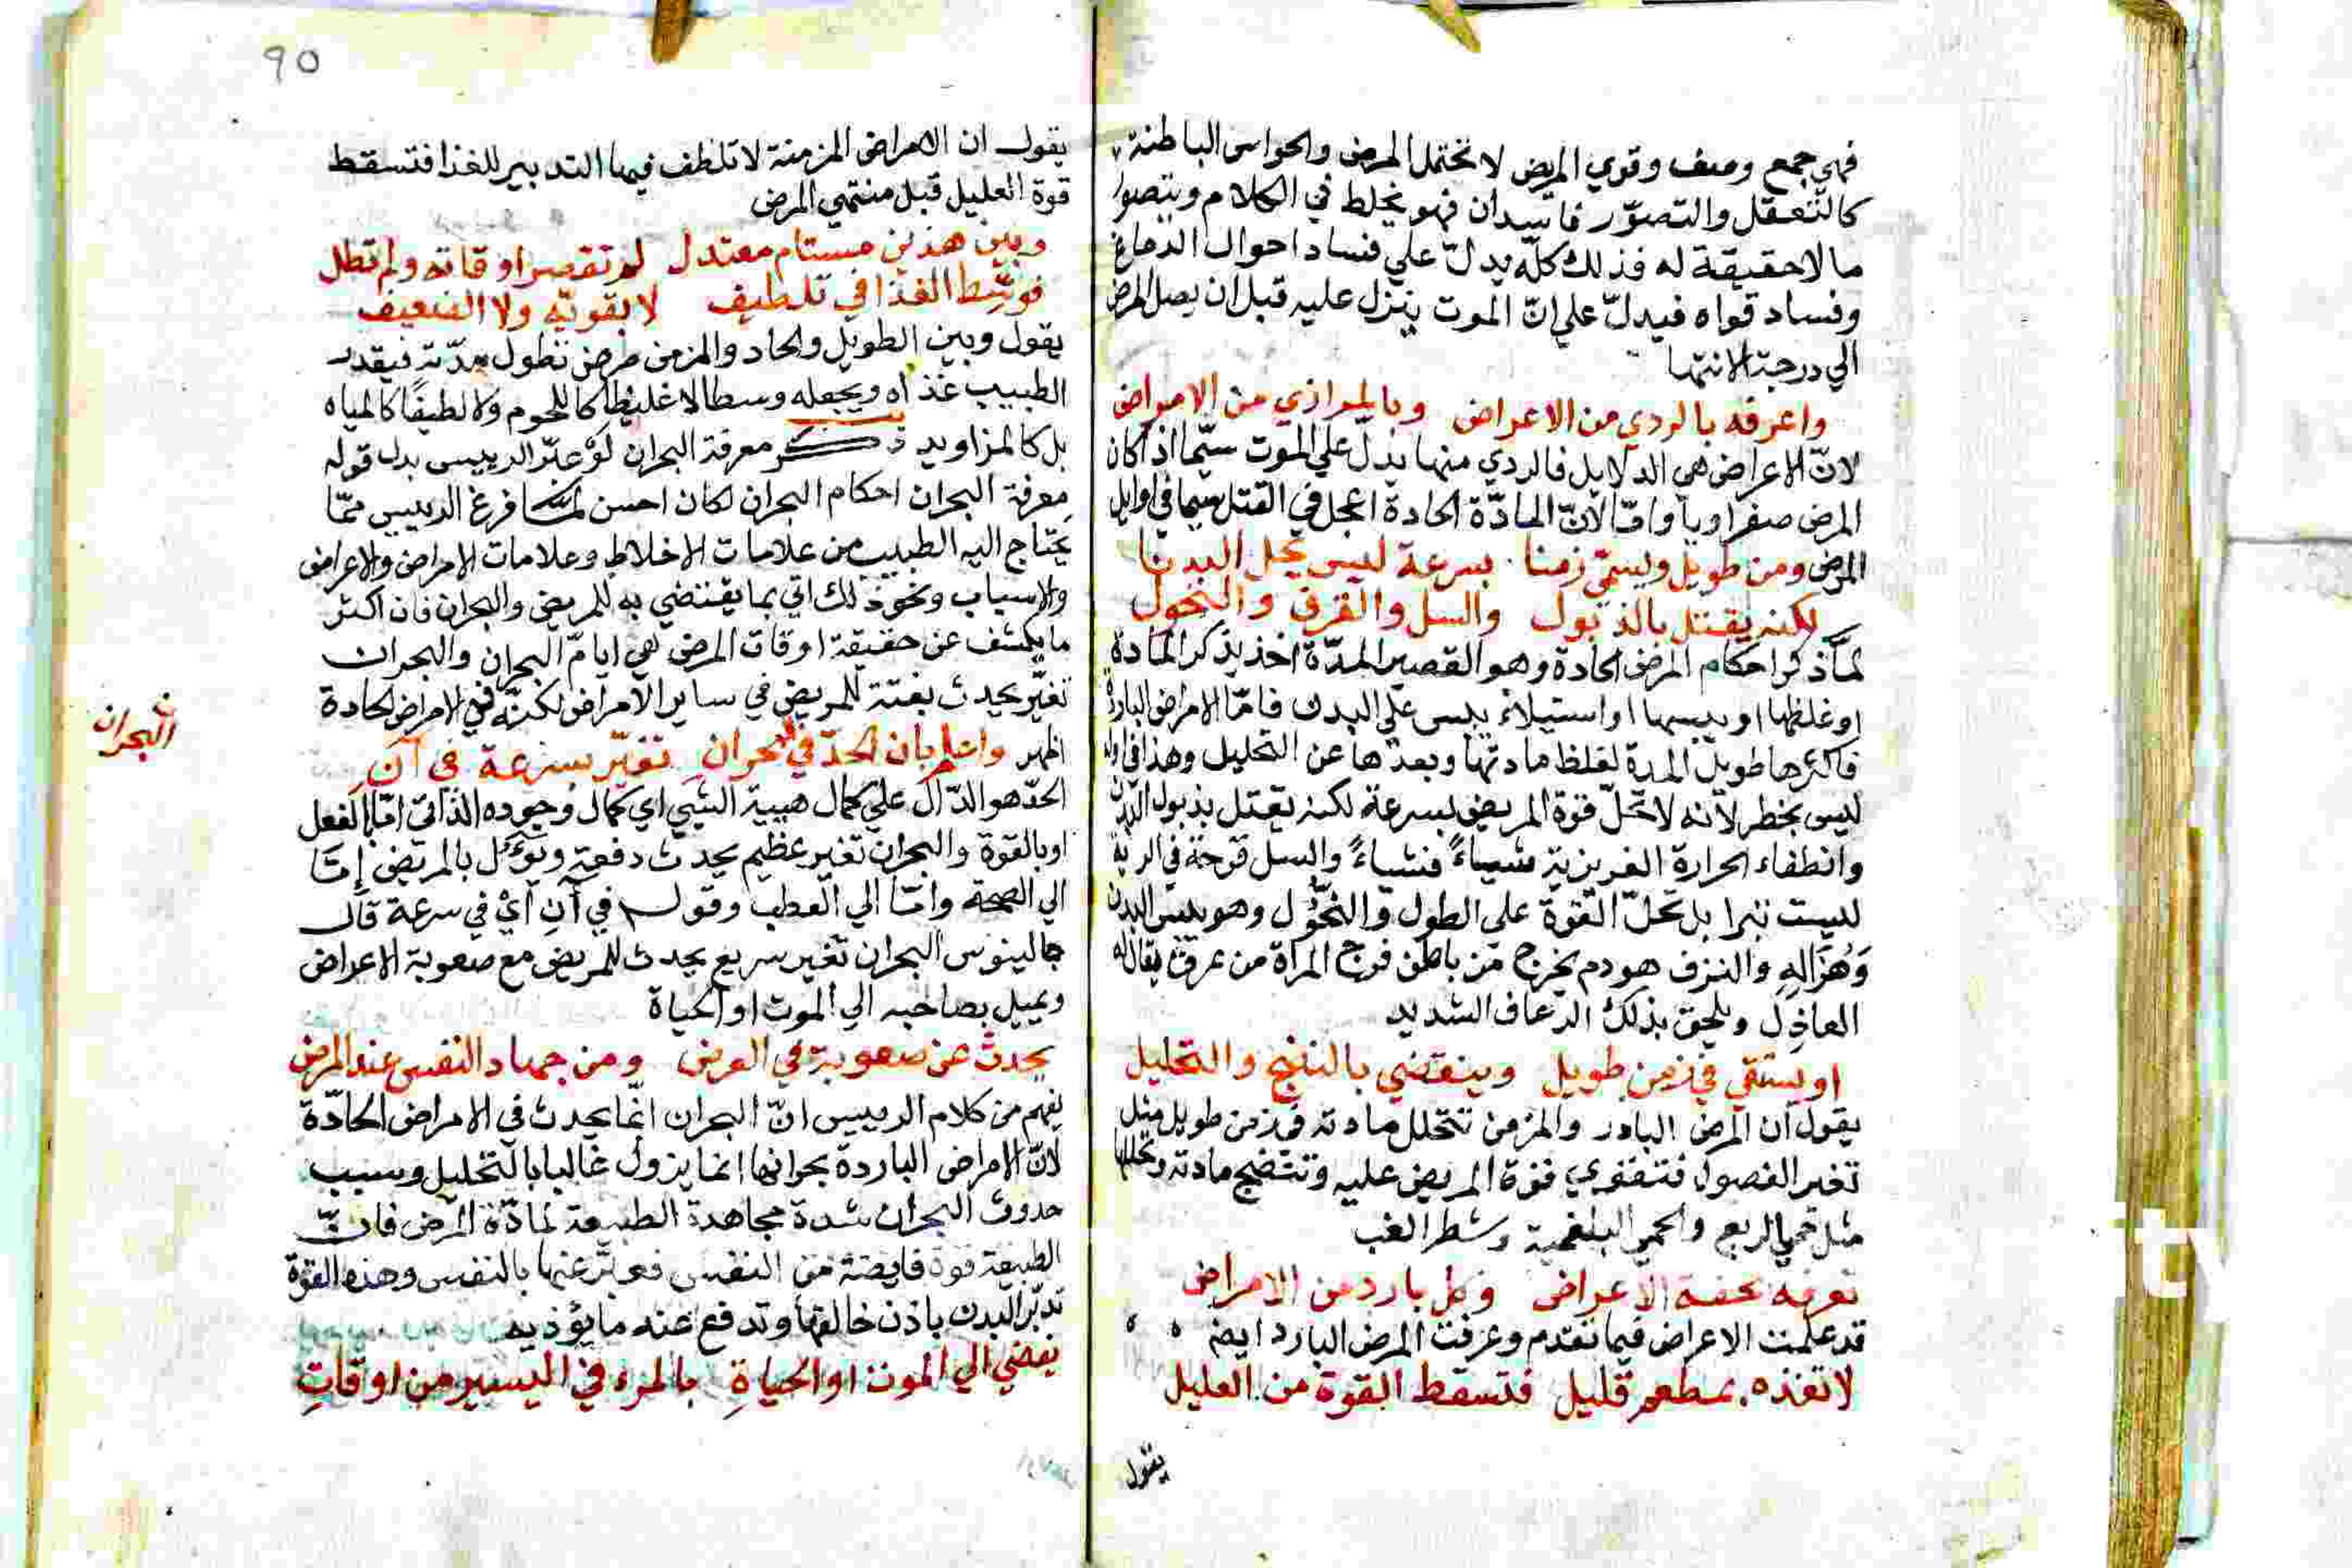 فهي جمع وصف وقوي المريض لا تحتمل المرض والحواس الباطنة
كالتعقل والتصوّر فاسدان فهو يخلط في الكلام ويتصور
ما لا حقيقة له فذلك كلّه يدلّ علي فساد احوال الدماغ
وفساد قواه فيدلّ علي انّ الموت ينزل عليه قبل ان يصل المرض
الي درجة الانتها
واعرفه بالردي من الاعراض وبالمراذي من الامراض
لانّ الاعراض هي الدلايل فالردي منها يدلّ علي الموت سيّما اذا كان
المرض صفراويا وامّا لانّ المادّة الحادة اعجل في القتل سيما في اوايل
المرض ومن طويل ويسمّي زمنا بسرعة ليس يحل البدنا
لكنه يقتل بالذبول والسل والنزف والنحول
لمّا ذكر احكام المرض الحادة وهو القصير المدّة اخذ يذكر المادة
او غلظها او يبسها او استيلاء يبس علي البدن فامّا الامراض الباردة
فاكثرها طويل المدة لغلظ مادتها وبعدها عن التحليل وهذا في
ليس بخطر لانه لا تحلّ قوة المريض بسرعة لكنه يقتل بذبول البدن
وانطفاء الحرارة الغريزية شياءً فشياءً والسل قرحة في الرية
ليست تبرا بل تحلّ القوة علي الطول والنحُّول وهو يبس البدن
وَهُزَالِهِ والنزف هو دم يخرج من باطن فرج المراة من عرق يقال له
العاذِل ويلحق بذلك الرعاف الشديد
او ينتقي في زمن طويل وينقضي بالنضج والتحليل
يقول ان المرض البارد والمزمن تتحلل مادته في زمن طويل مثل
تغير الفصول فتقوي قوة المريض عليه وتنضج مادته وتحللها
مثل حمي الربع والحمي البلغمية وشطر الغب
تعرفه بخفة الاعراض وكل بارد من الامراض
قد علمت الاعراض فيما تقدم وعرفت المرض البارد ايضه
لا تغذه بمطعم قليل فتسقط القوة من العليل
يقول
٩٥
يقول ان الامراض المزمنة لا تلطف فيها التدبير للغذا فتسقط
قوة العليل قبل منتهي المرض
وبين هذين مستام معتدل لم تقصر اوقاته ولم تطل
فوسّط الغذا في تلطيف لا بقويّه ولا الضعيف
يقول وبين الطويل والحاد والمزمن مرض تطول مدّته فيقدر
الطبيب غذاه ويجعله وسطا لا غليظا كاللحوم ولا لطيفًا كالمياه
بل كالمزاوير ذكر معرفة البحران لو عبّر الرييس بدل قوله
معرفة البحران احكام البحران لكان احسن لما فرغ الرييس ممّا
يَحتاج اليه الطبيب من علامات الاخلاط وعلامات الامراض والاعراض
والاسباب ونحو ذلك اتي بما يقتضي به للمريض والبحران فان اكثر
ما يكشف عن حقيقة اوقات المرض هي ايّام البحران والبحران
تغيّر يحدث بغتة للمريض في ساير الامراض لكنّه في الامراض الحادة
اظهر واعلم بان الحدّ في البحران تغيّر بسرعة في آنِ
البحران
الحدّ هو الدّال علي كمال هيية الشي اي كمال وجوده الذاتي امّا بالفعل
او بالقوة والبحران تغير عظيم يحدث دفعة ويؤّل بالمريض إمّا
الي الصحة وامّا الي العطب وقوله في آنِ اي في سرعة قال
جالينوس البحران تغير سريع يحدث للمريض مع صعوبة الاعراض
ويميل بصاحبه الي الموت او الحياة
يحدث عن صعوبة في العرض ومن جهاد النفس عند المرض
يفهم من كلام الرييس انّ البحران انّما يحدث في الامراض الحادّة
لانّ الامراض الباردة بحرانها انما يزول غالبا بالتحليل وسبب
حدوث البحران شدة مجاهدة الطبيعة لمادّة المرض فانّ
الطبيعة قوة فايضة من النفس فعبّر عنها بالنفس وهذه القوّة
تدبّر البدن باذن خالقها وتدفع عنه ما يؤذيه
يفضي الي الموت او الحياةِ بالمرء في اليسير من اوقاتِ